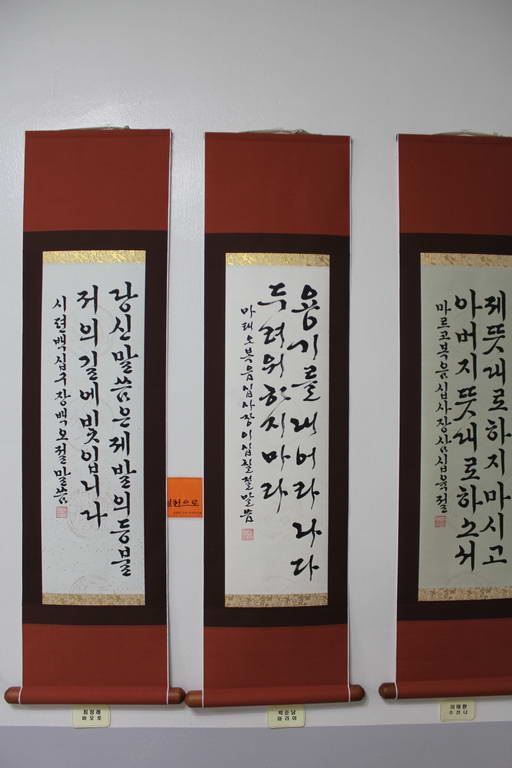 당신말씀은제발의등불
저의길에빛입니다
시편백십구장백오절말씀
용기를내어라나다
두려워하지마라
마태오복음십사장이십칠절말씀
제뜻대로하지마시고
아버지뜻대로하소서
마르코복음십사장삼십육절
바오로
마리아
수산나